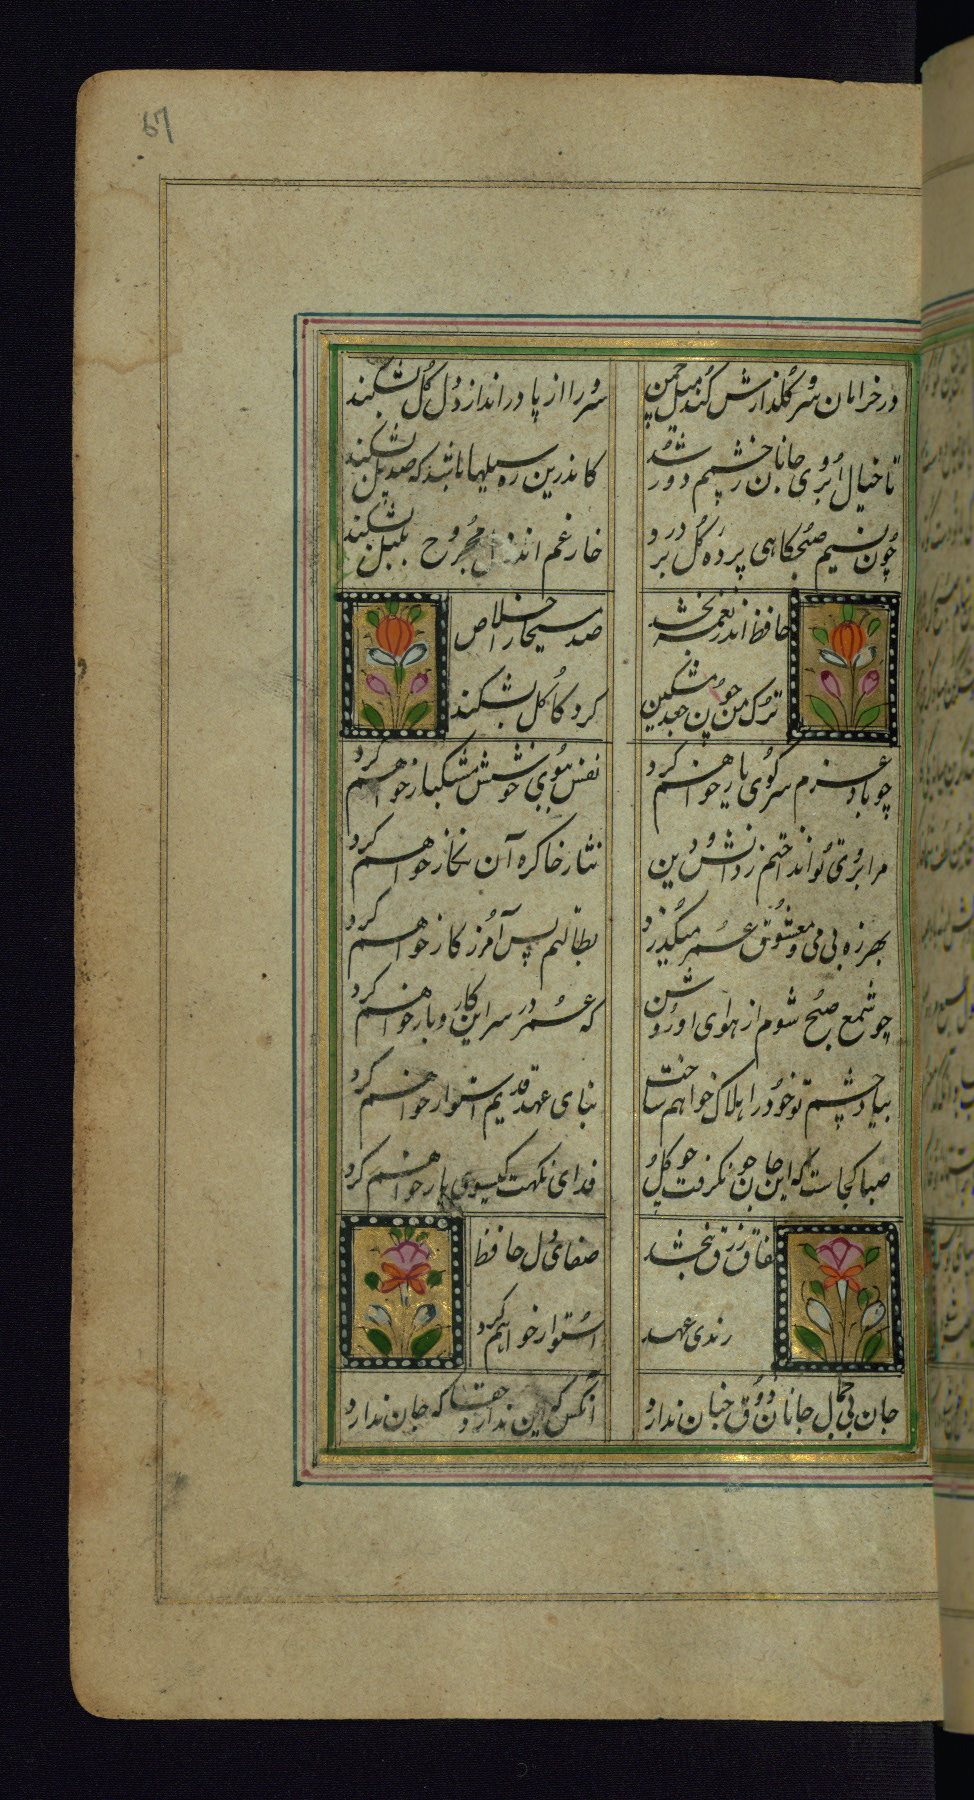 67
در خرامان سرو گلعذارش کند میل چمن
سرو را از پا در اندازد دل گل بشکند
تا خیال ابروی جانان ز چشمم دور شد
کاندرین ره سیلها باشد که صد پل بشکند
چون نسیم صبحگاهی پرده گل بر درد
خار غم اندر دل مجروح بلبل بشکند
حافظ اندر نغمه بخشد
صد مسیحا را خلاص
ترک من چون جعد مشکین
گرد کاکل بشکند
چو باد عزم سر کوی یار خواهم کرد
نفس ببوی خوشش مشکبار خواهم کرد
هر آبروی که اندوختم ز دانش و دین
نثار خاک ره آن نگار خواهم کرد
بهرزه بی می و معشوق عمر میگذرد
بطالتم بس امروز کار خواهم کرد
چو شمع صبح شوم از هوای او روشن
که عمر در سر این کار و بار خواهم کرد
بیاد چشم تو خود را هلاک خواهم ساخت
بنای عهد قدیم استوار خواهم کرد
صبا کجاست که این جان خون گرفته چو گل
فدای نکهت گیسوی یار خواهم کرد
نفاق و زرق نبخشد
صفای دل حافظ
رندی عهد
استوار خواهم کرد
جان بی جمال جانان ذوق جنان ندارد
آنکس که این ندارد حقا که جان ندارد